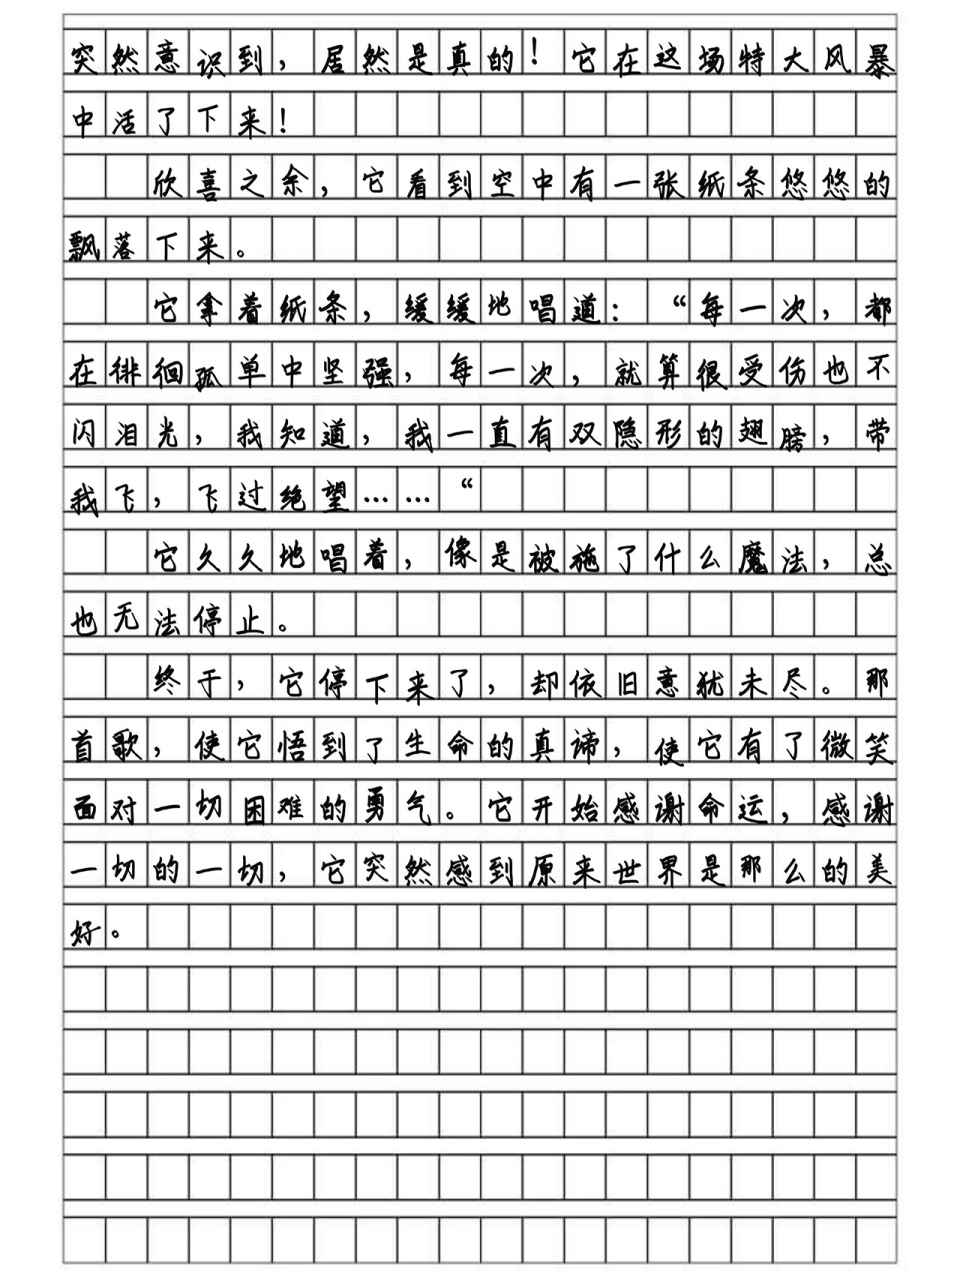 突然意识到，居然是真的！它在这场特大风暴
中活了下来！
欣喜之余，它看到空中有一张纸条悠悠的
飘落下来。
它拿着纸条，缓缓地唱道：“每一次，都
在徘徊孤单中坚强，每一次，就算很受伤也不
闪泪光，我知道，我一直有双隐形的翅膀，带
我飞，飞过绝望……“
它久久地唱着，像是被施了什么魔法，总
也无法停止。
终于，它停下来了，却依旧意犹未尽。那
首歌，使它悟到了生命的真谛，使它有了微笑
面对一切困难的勇气。它开始感谢命运，感谢
一切的一切，它突然感到原来世界是那么的美
好。